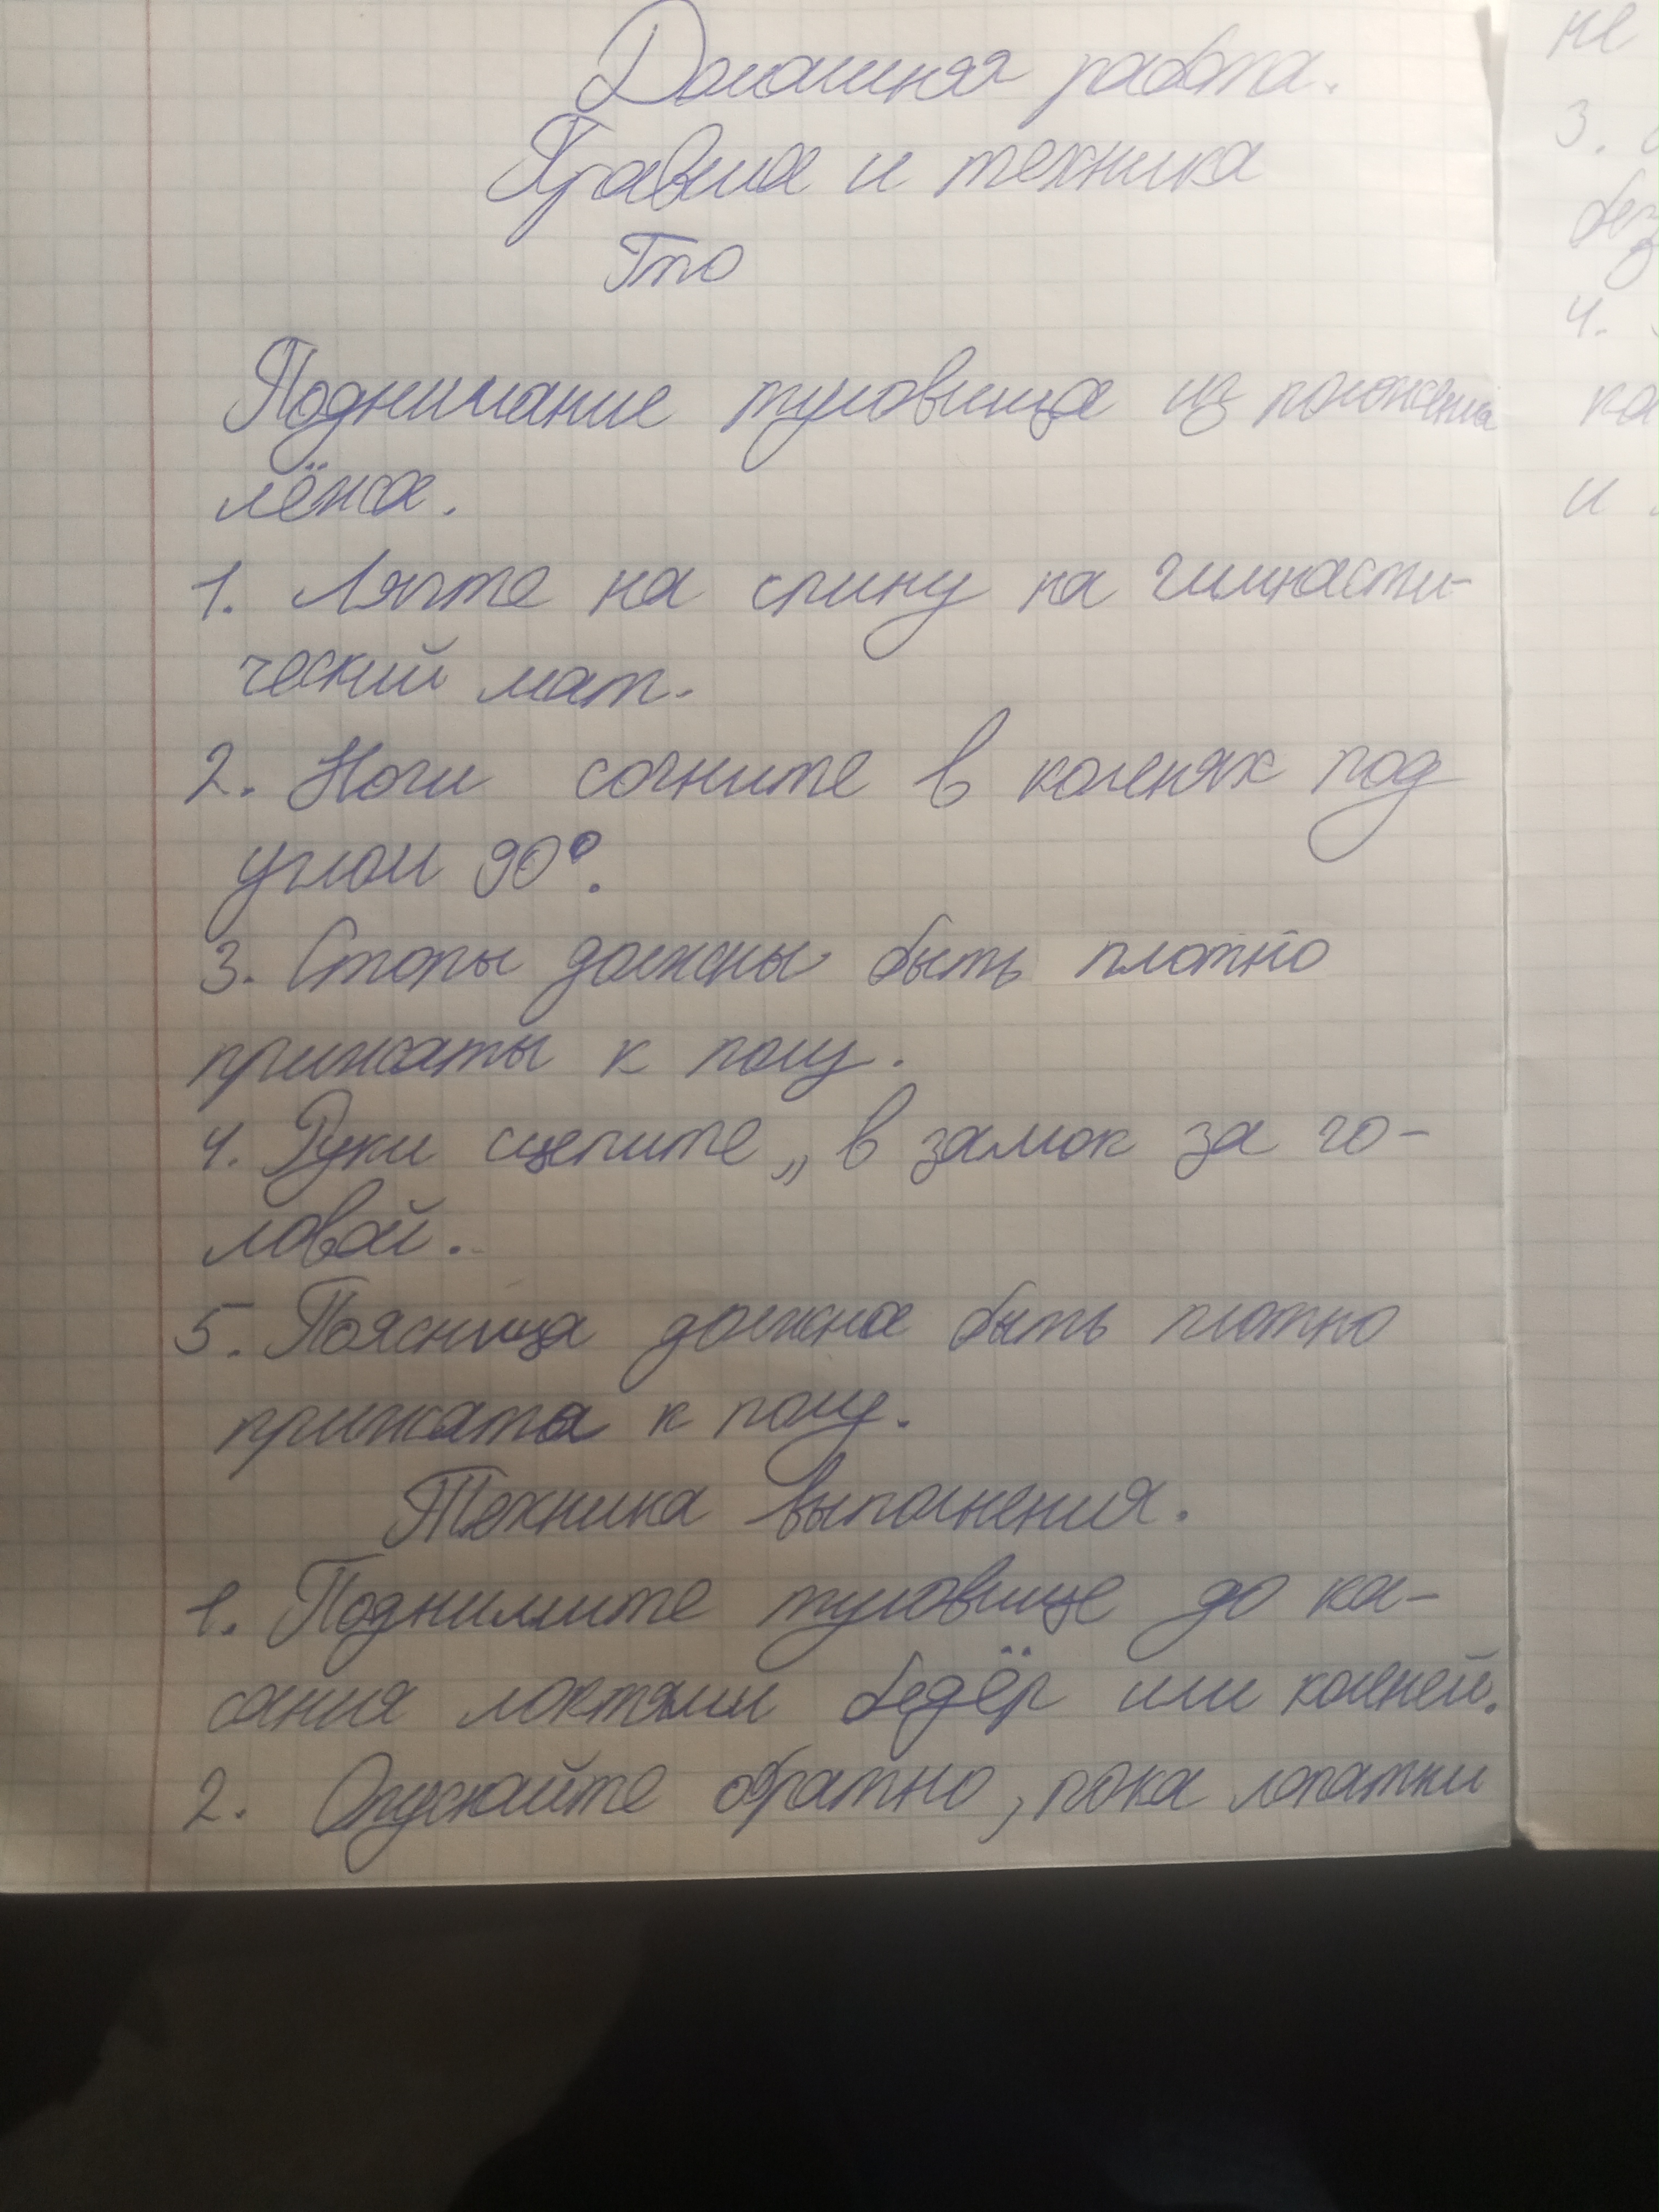 Домашняя работа.
Правила и техника
Гто
Поднимание туловища из положения
лёжа.
1. Лягте на спину на гимнасти-
ческий мат.
2. Ноги согните в коленях под
углом 90°.
3. Стопы должны быть плотно
прижаты к полу.
4. Руки сцепите „в замок за го-
ловой.
5. Поясница должна быть плотно
прижата к полу.
Техника выполнения.
1. Поднимите туловище до ка-
сания локтями бёдер или коленей.
2. Опускайте обратно, пока лопатки
не
3.
без
4.
ка
и